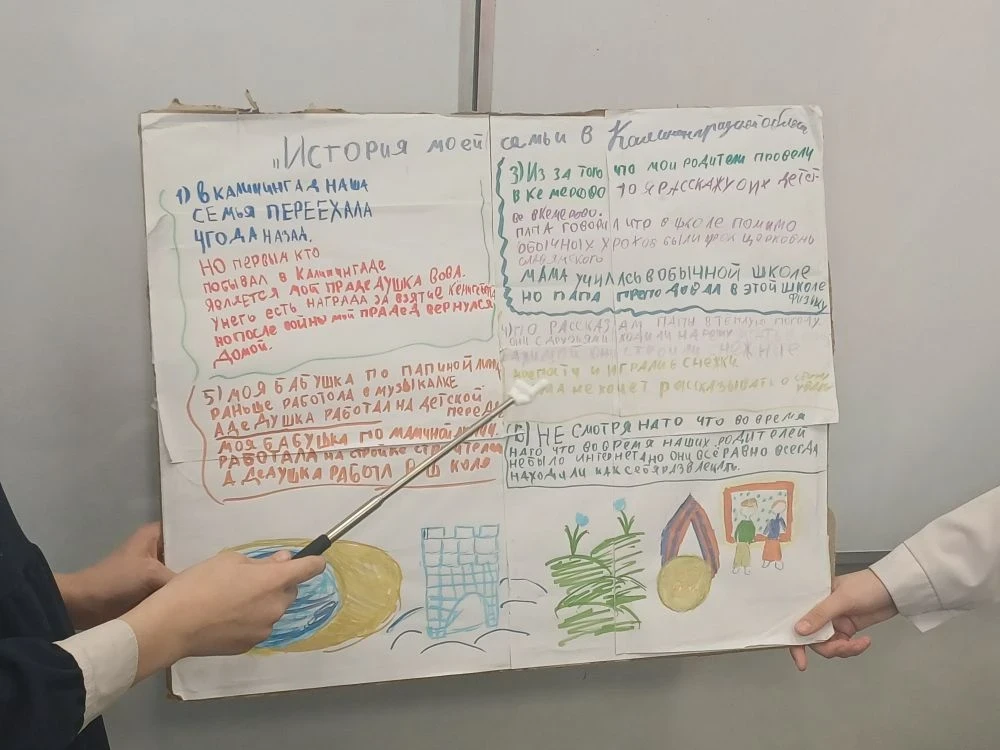 „История моей семьи в Калининградской области
1) В КАЛИНИНГАД НАША
СЕМЬЯ ПЕРЕЕХАЛА
4ГОДА НАЗАД.
НО ПЕРВЫМ КТО
ПОБЫВАЛ В КАЛИНИНГАДЕ
ЯВЛЯЕТСЯ МОЙ ПРАДЕДУШКА ВОВА.
У НЕГО ЕСТЬ НАГРАДА ЗА ВЗЯТИЕ
НО ПОСЛЕ ВОЙНЫ МОЙ ПРАДЕД ВЕРНУЛСЯ
ДОМОЙ.
3) ИЗ ЗА ТОГО ЧТО МОИ РОДИТЕЛИ ПРОВЕЛИ
В КЕМЕРОВО ТО Я РАССКАЖУ О ИХ ДЕТСТ
ве В КЕМЕРОВО.
ПАПА ГОВОРИЛ ЧТО В ШКОЛЕ ПОМИМО
ОБЫЧНЫХ УРОКОВ БЫЛИ УРОК ЦЕРКОВНО
СЛАВЯНСКОГО
МАМА УЧИЛАСЬ В ОБЫЧНОЙ ШКОЛЕ
НО ПАПА ПРЕПОДОВАЛ В ЭТОЙ ШКОЛЕ
ФИЗИКУ
4) ПО РАССКАЗАМ ПАПЫ В ТЁПЛУЮ ПОГОДУ
ОНИ С ДРУЗЬЯМИ ХОДИЛИ НА РЕЧКУ
А ЗИМОЙ ОНИ СТРОИЛИ СНЕЖНЫЕ
И ИГРАЛИ В СНЕЖКИ.
НЕ ХОЧЕТ РАССКАЗЫВАТЬ О
5) МОЯ БАБУШКА ПО ПАПИНОЙ
РАНЬШЕ РАБОТОЛА В МУЗЫКАЛКЕ
А ДЕДУШКА РАБОТАЛ НА ДЕТСКОЙ
МОЯ БАБУШКА ПО МАМИНОЙ
РАБОТАЛА НА СТРОЙКЕ
А ДЕДУШКА РАБОТАЛ В ШКОЛЕ
6) НЕ СМОТРЯ НА ТО ЧТО ВО ВРЕМЯ
НАТО ЧТО ВО ВРЕМЯ НАШИХ РОДИТЕЛЕЙ
НЕ БЫЛО ИНТЕРНЕТА НО ОНИ ВСЕ РАВНО ВСЕГДА
НАХОДИЛИ КАК СЕБЯ РАЗВЛЕЧАТЬ.